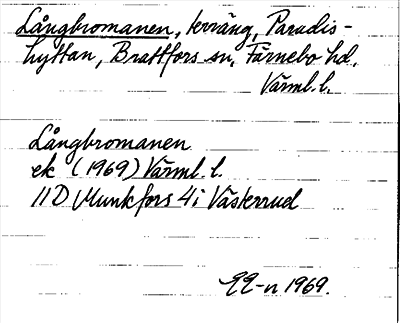 Långbromanen, terräng, Paradis-
hyttan, Brattfors sn, Färnebo hd.
Värml. l.
Långbromanen
ek (1969) Värml. l.
11D Munkfors 4i Västerrud
1969.